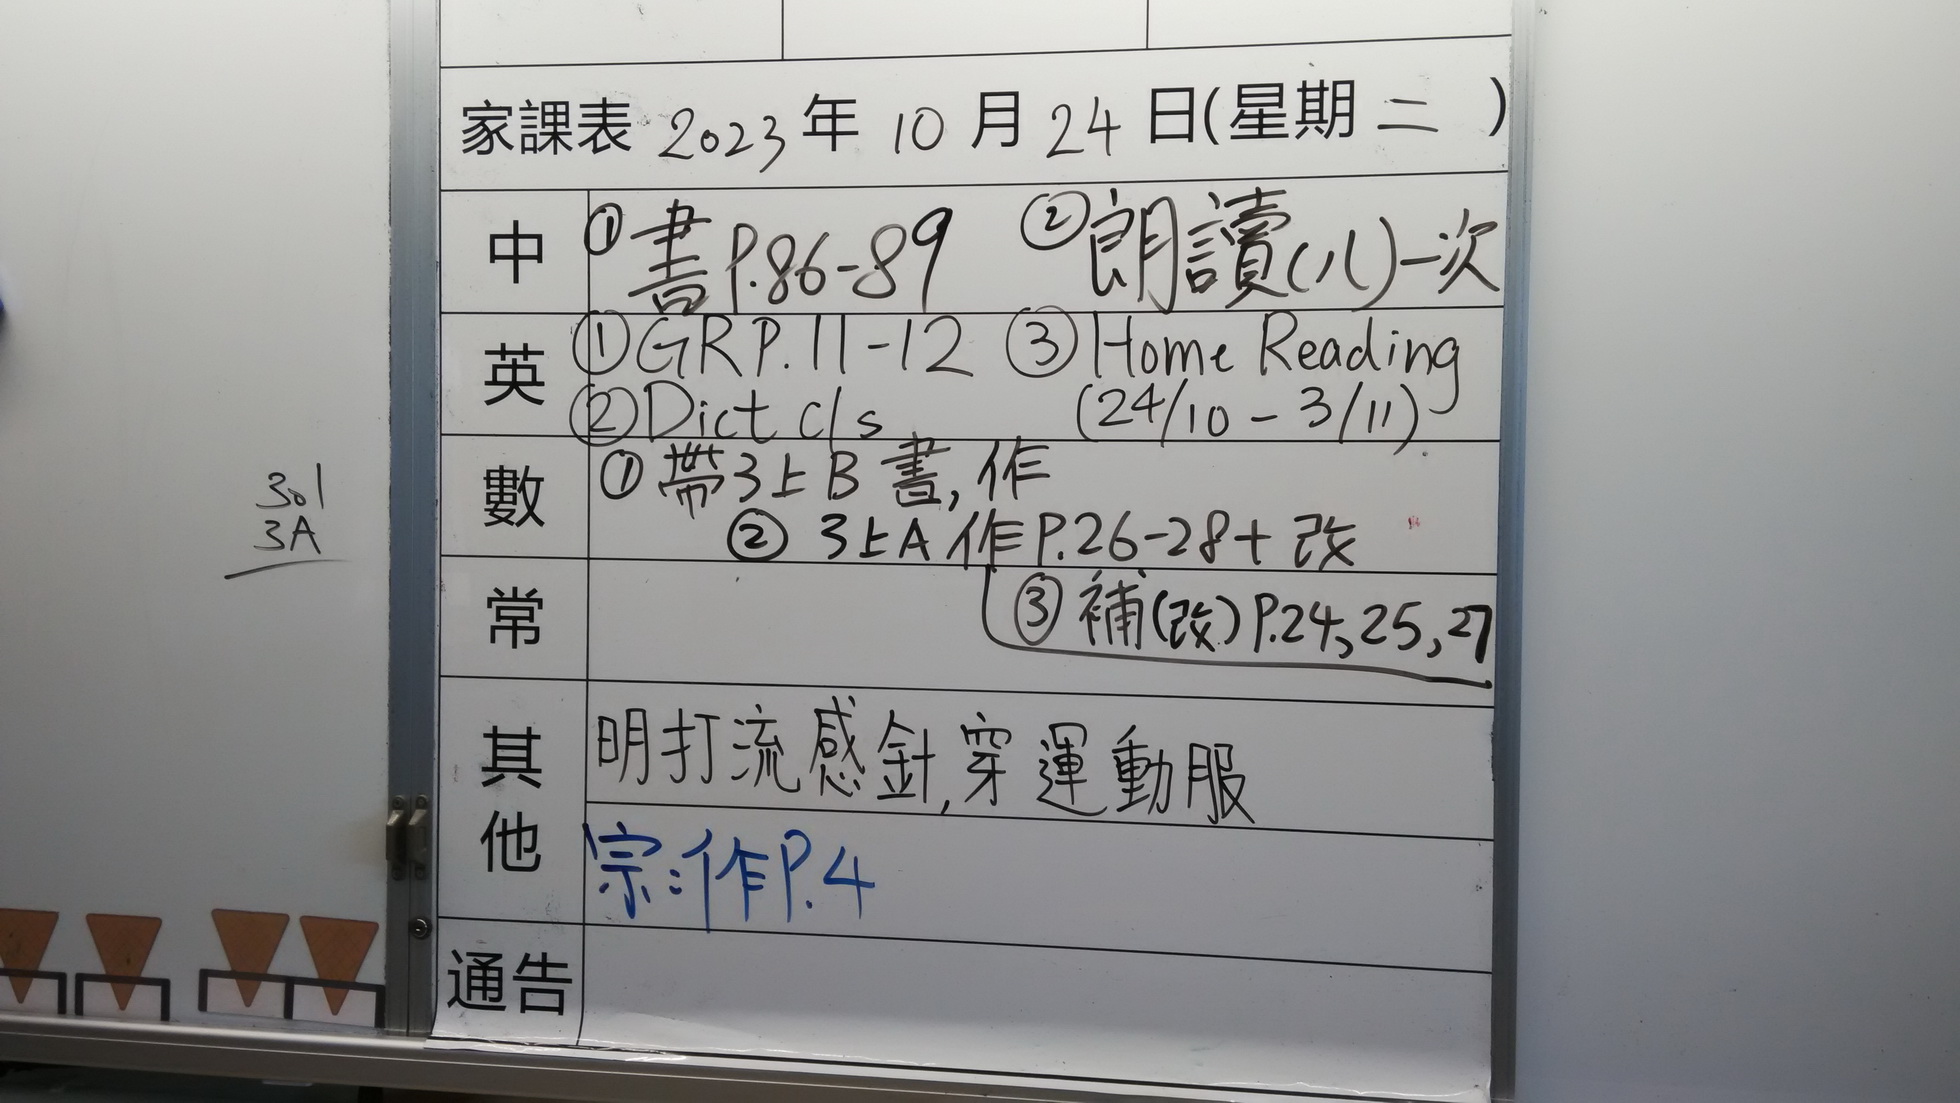 家課表 2023年 10月 24日(星期二)
中 ①書P.86-89 ②朗讀(八)一次
英 ①GR P.11-12 ③Home Reading
②Dict c/s (24/10 - 3/11).
數 ①帶3上B書,作
②3上A作P.26-28+改
常 ③補(改)P.24,25,27
其他 明打流感針,穿運動服
宗:作P.4
通告
301
3A